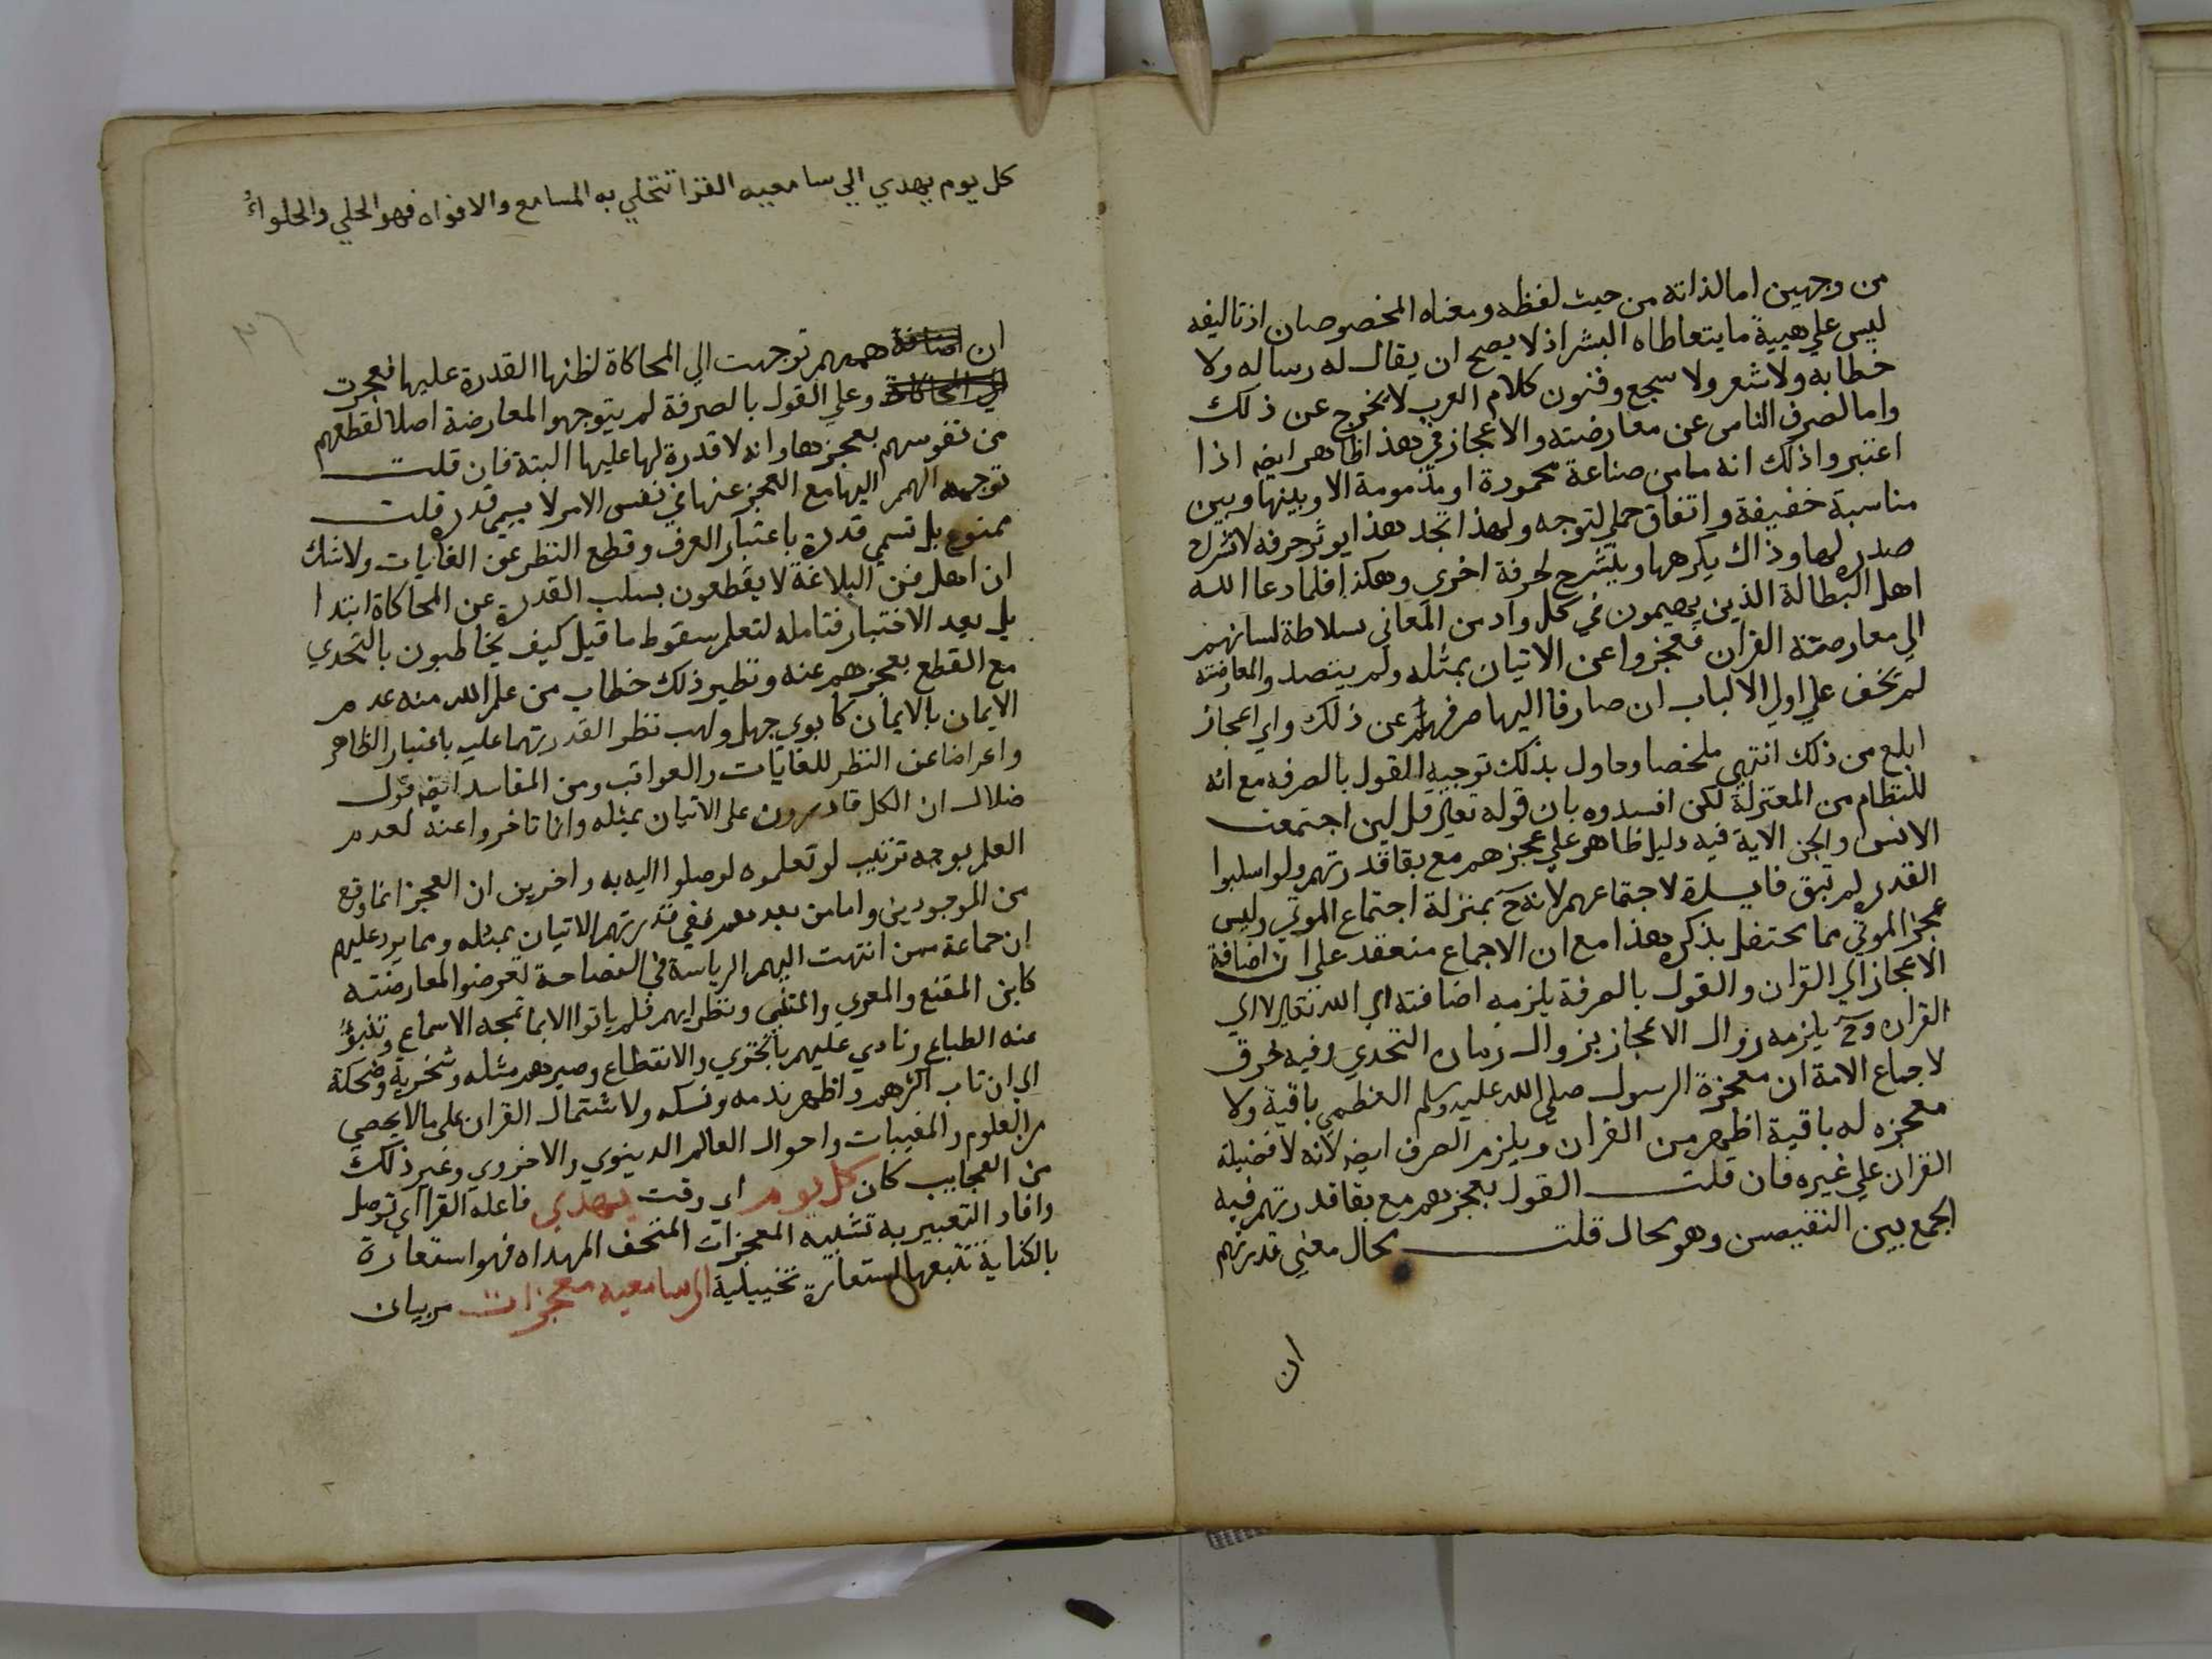 من وجهين اما لذاته من حيث لفظه ومعناه المخصوصان اذ تاليفه
ليس علي هيية ما يتعاطاه البشر اذ لا يصح ان يقال له رساله ولا
خطابه ولا شعر ولا سجع وفنون كلام العرب لا يخرج عن ذلك
واما لصرف الناس عن معارضته والاعجاز في هذا ظاهر ايضا اذا
اعتبر وا ذلك انه ما من صناعة محمودة او مذمومة الا وبينها وبين
مناسبة خفيفة واتفاق جملي لتوجه ولهذا تجد هذا يوثر حرفه لانشراح
صدره لها وذاك يكرهها وينشرح لحرفة اخري وهكذا فلما دعا الله
اهل البطالة الذين يهيمون في كل واد من المعاني بسلاطة لسانهم
الي معارضة القران فعجزوا عن الاتيان بمثله ولم يتصدوا لمعارضته
لم تخف علي اولي الالباب ان صارفا اليها صرفهم عن ذلك واي اعجاز
ابلغ من ذلك انتهي ملخصا وحاول بذلك توجيه القول بالصرفه مع انه
للنظام من المعتزلة لكن افسدوه بان قوله تعالي قل لين اجتمعت
الانس والجن الاية فيه دليل ظاهر علي عجزهم مع بقا قدرتهم ولو اسلبوا
القدره لم تبق فايدة لاجتماعهم لانه ح بمنزلة اجتماع الموتي وليس
عجز الموتي مما يحتفل بذكره هذا مع ان الاجماع منعقد علي ان اضافة
الاعجاز الي القران والقول بالصرفة يلزمه اضافته الي الله تعالي لا الي
القران وح يلزمه زوال الاعجاز بزوال زمان التحدي وفيه خرق
لاجماع الامة ان معجزة الرسول صلي الله عليه وسلم العظمي باقية ولا
معجزه له باقية اظهر من القران ويلزم الصرف ايضا لانه لا فضيلة
القران علي غيره فان قلت القول بعجزهم مع بقا قدرتهم فيه
الجمع بين النقيضين وهو محال قلت محال معني قدرتهم
ان
كل يوم يهدي الي سامعيه القرا تتحلي به المسامع والافواه فهو الحلي والحلواءُ
ان اضافة هممهم توجهت الي المحاكاة لظنها القدرة عليها فعجزت
الي المحاكاة وعلي القول بالصرفة لم يتوجهوا لمعارضة اصلا لقطعهم
من نفوسهم بعجزها وانه لا قدرة لها عليها البتة فان قلت
توجه الهمم اليها مع العجز عنها في نفس الامر لا يسمي قدره قلت
ممنوع بل تسمي قدرة باعتبار العرف وقطع النظر عن الغايات ولا شك
ان اهل فن البلاغة لا يقطعون بسلب القدرة عن المحاكاة ابتدا
بل بعد الاختبار فتامله لتعلم سقوط ما قيل كيف يخاطبون بالتحدي
مع القطع بعجزهم عنه ونظير ذلك خطاب من علم الله منه عدم
الايمان بالايمان كابوي جهل ولهب نظر القدرتهما عليه باعتبار الظاهر
واعراضا عن النظر للغايات والعواقب ومن المفاسد ايضا قول
ضلال ان الكل قادرون علي الاتيان بمثله وانا تاخروا عنه لعدم
العلم بوجه ترتيب لو تعلموه لوصلوا اليه به واخرين ان العجز انما وقع
من الموجودين واما من بعدهم ففي قدرتهم الاتيان بمثله ومما يرد عليهم
ان جماعة ممن انتهت اليهم الرياسة في الفصاحة تعرضوا لمعارضته
كابن المقنع والمعري والمتنبي ونظرايهم فلم ياتوا الا بما تمجه الاسماع وتنبؤ
عنه الطباع ونادي عليهم بالخزي والانقطاع وصيرهم مثله وسخرية وضحكة
الي ان تاب اكثرهم واظهر ندمه ونسكه ولاشتمال القران علي ما لا يحصي
من العلوم والمغيبات واحوال العالم الدينوي والاخروي وغير ذلك
من العجايب كان كل يوم اي وقت يهدي فاعله القرا اي توصل
وافاد التعبير به تشبيه المعجزات المتحف المهداه فهو استعارة
بالكناية تتبعها استعارة تخييلية الي سامعيه معجزات من بيان